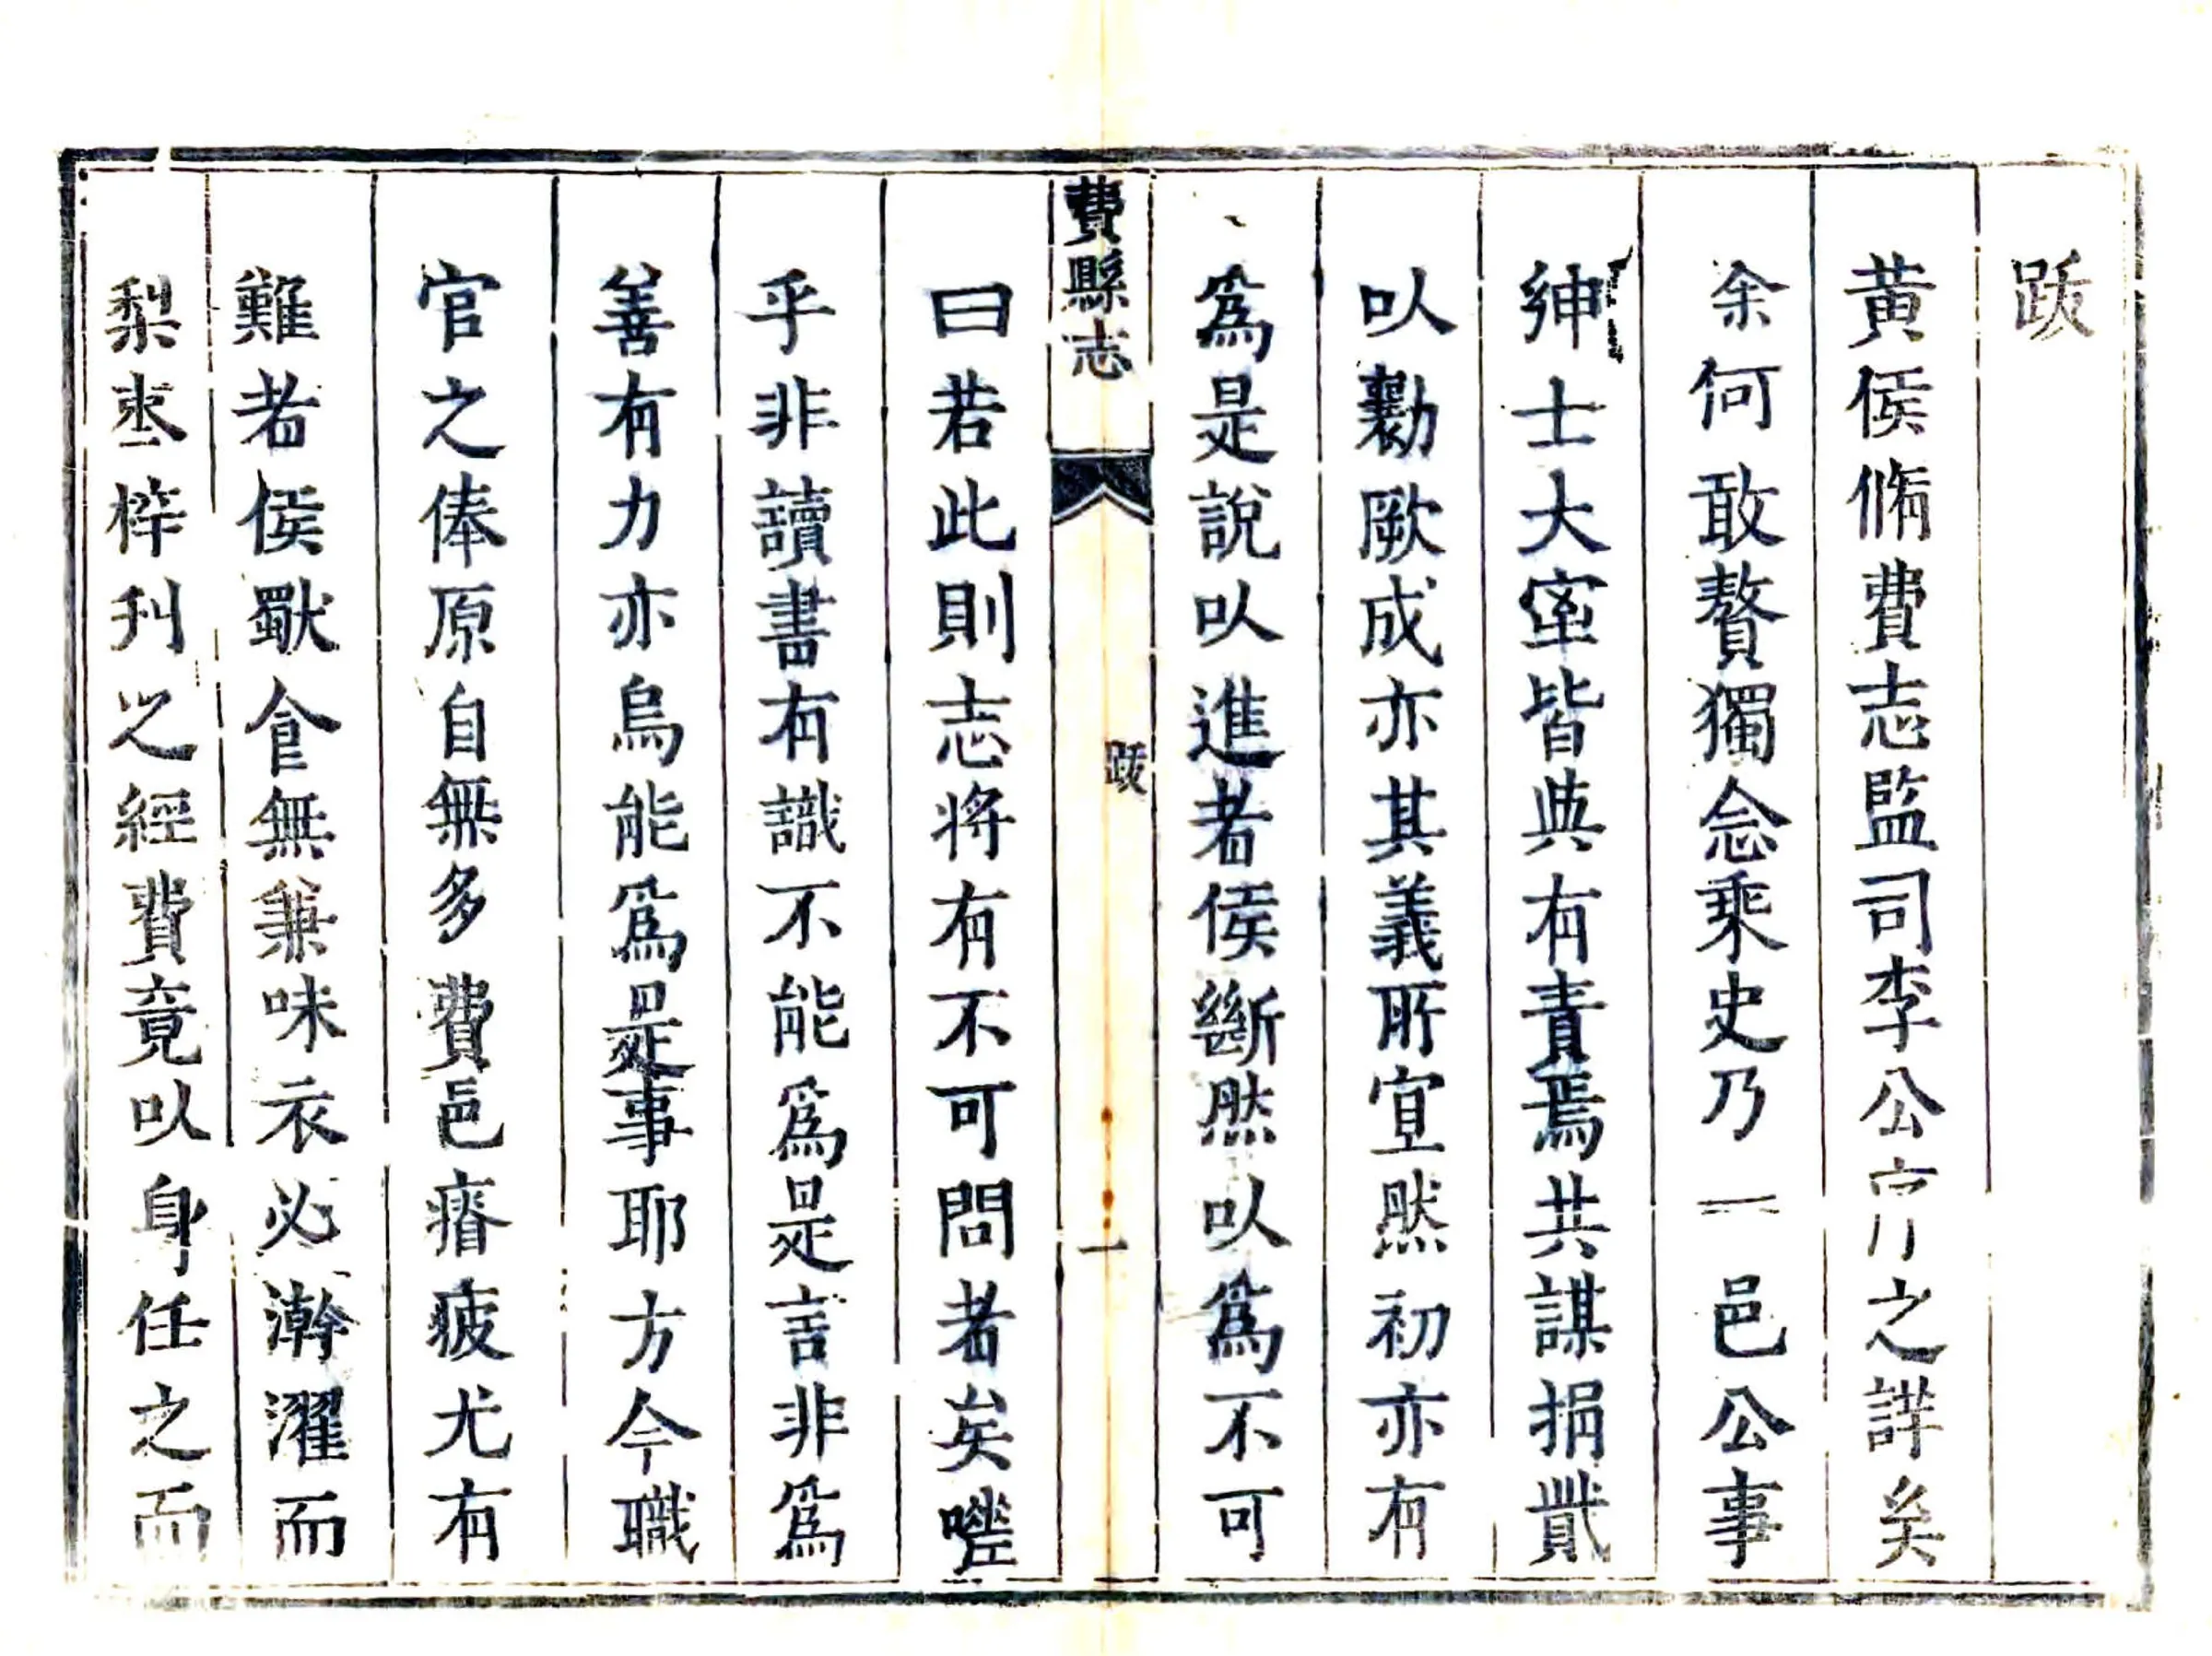 跋
黄侯脩費志監司李公之詳矣
余何敢贅獨念乘史乃一邑公事
紳士大室皆與有責焉共謀捐貲
以勷厥成亦其義所宜然初亦有
爲是說以進者侯斷然以爲不可
費縣志 跋 一
曰若此則志将有不可問者矣嗟
乎非讀書有識不能爲是言非爲
善有力亦烏能爲是事耶方今職
官之俸原自無多費邑瘠疲尤有
難者侯獨食無兼味衣必澣濯而
梨枣梓刋之經費竟以身任之而